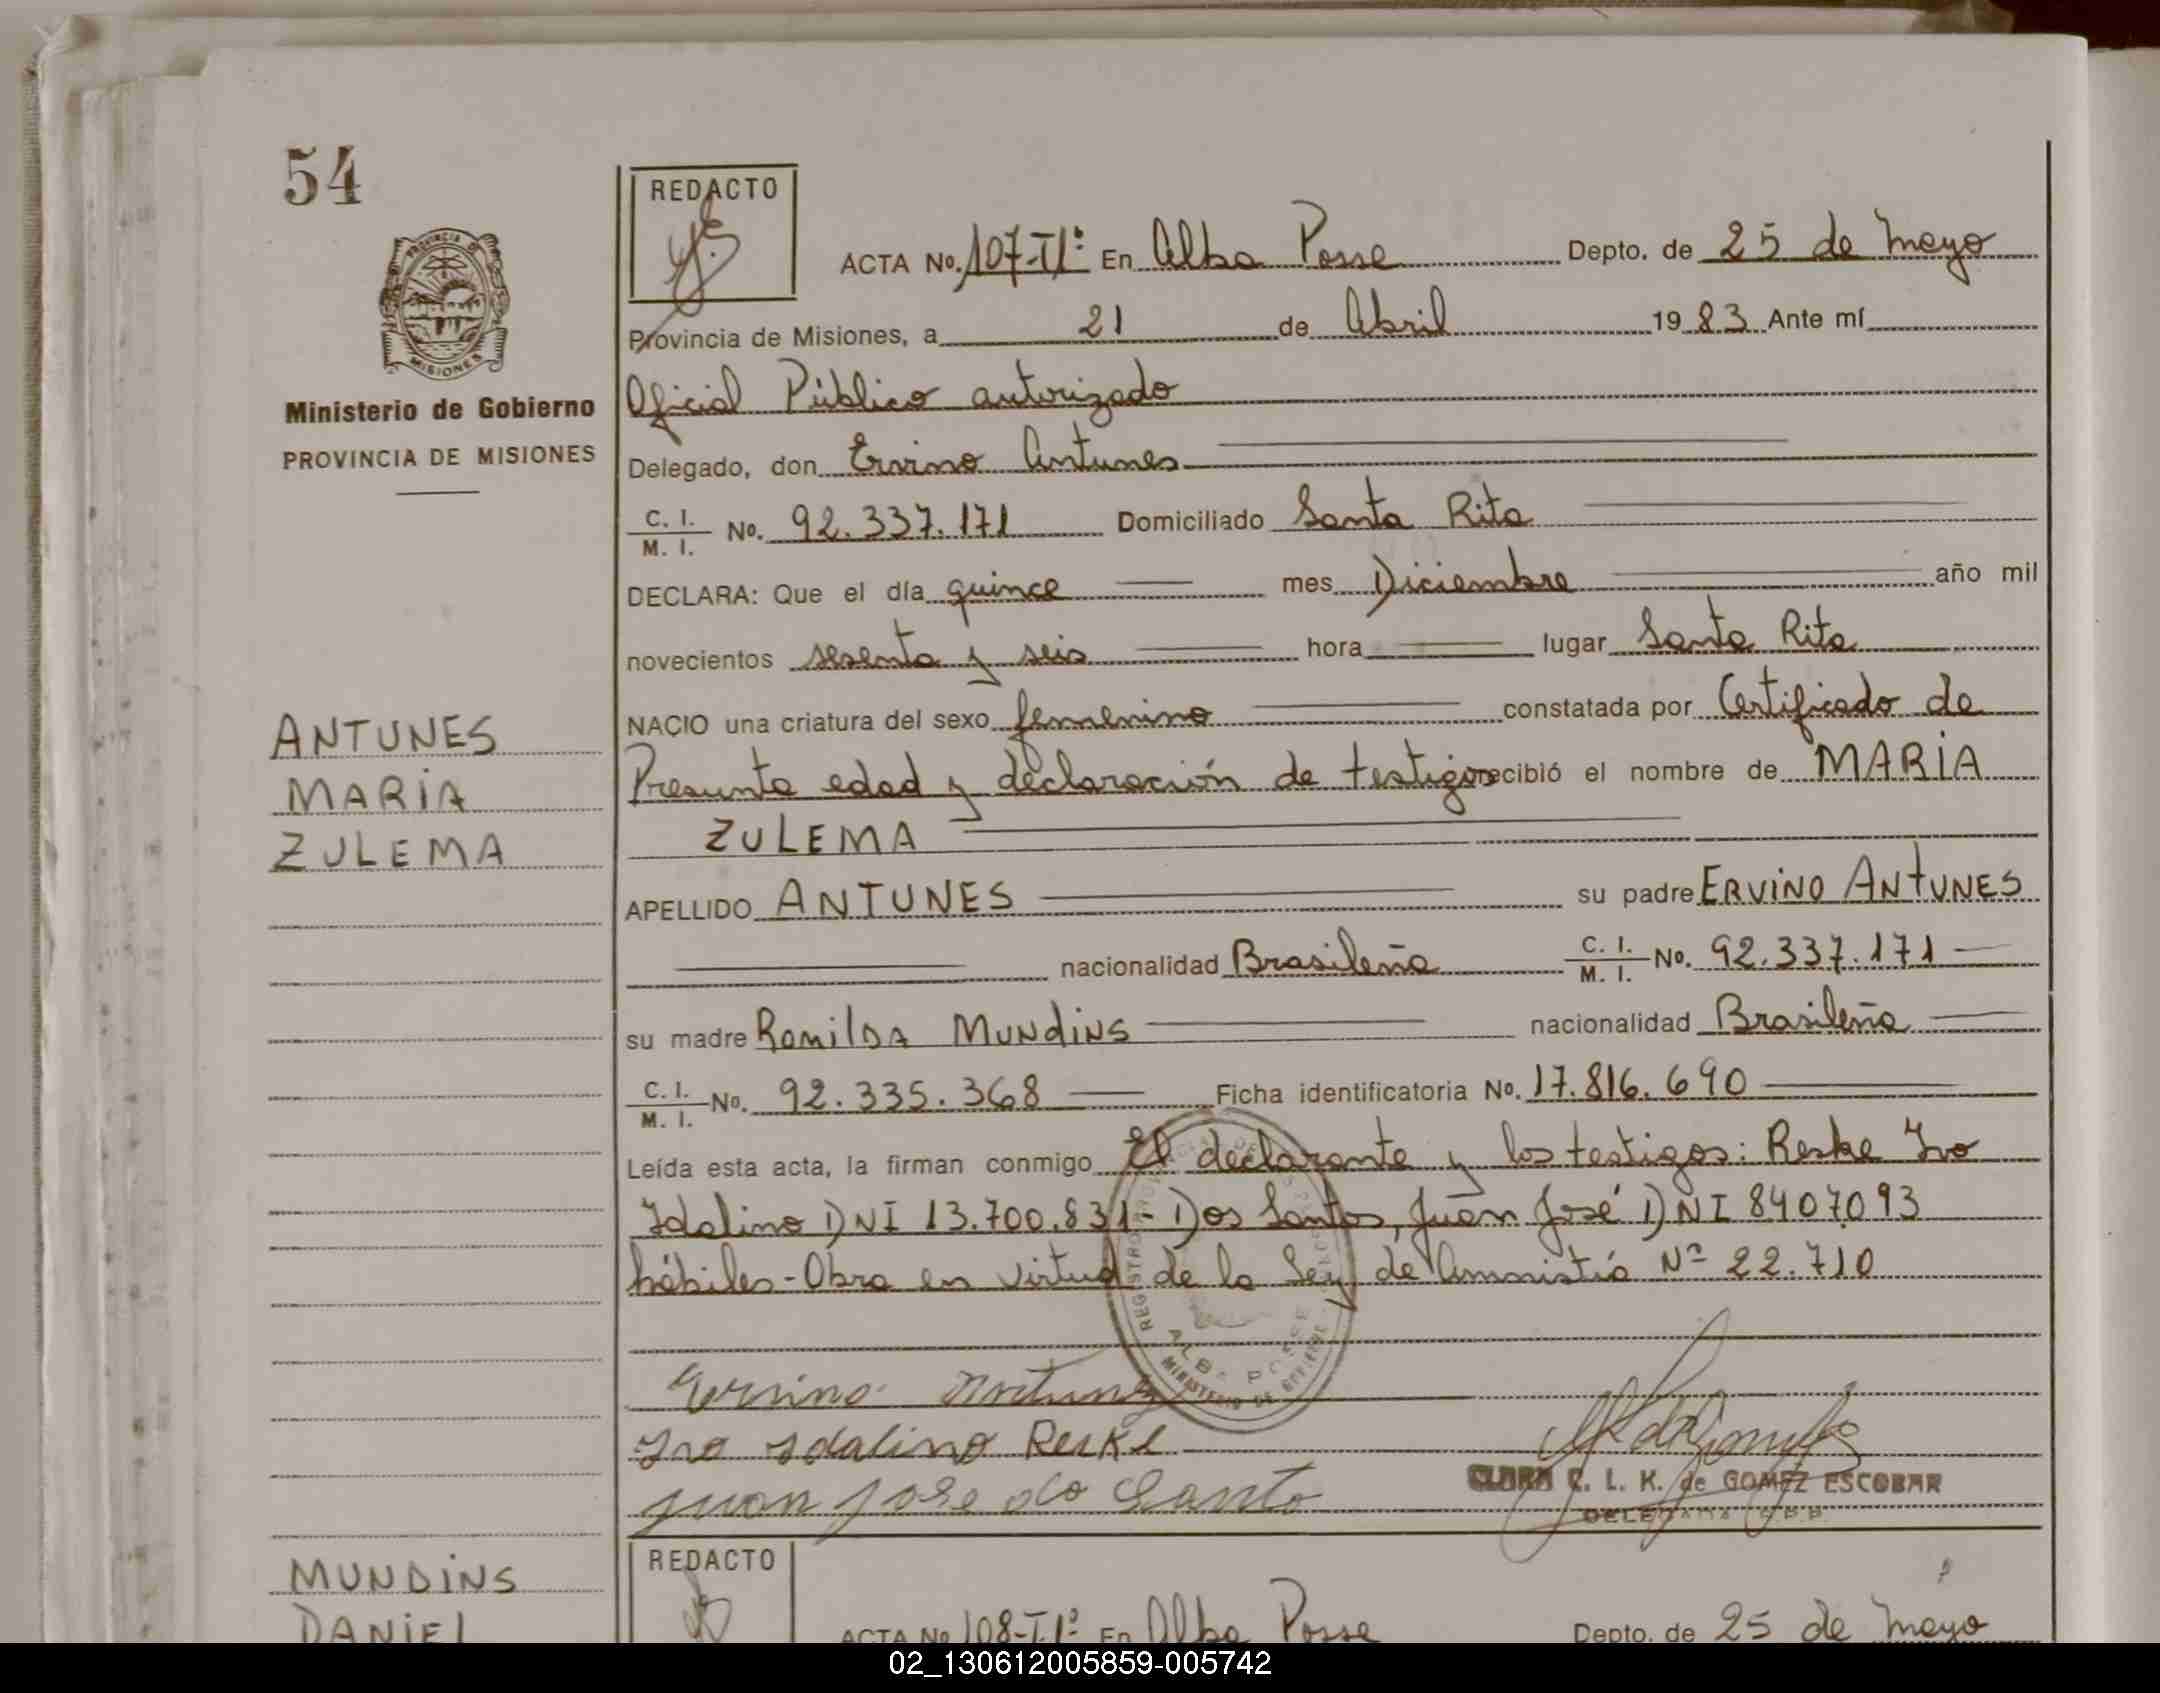 54
REDACTO
ACTA No. 107-Tº1º En Alba Posse Depto. de 25 de Mayo
PROVINCIA DE MISIONES
Provincia de Misiones, a 21 de Abril 1983 Ante mí
Oficial Público autorizado
Ministerio de Gobierno
PROVINCIA DE MISIONES
Delegado, don Ervino Antunes
C. I. / M. I. No. 92.337.171 Domiciliado Santa Rita
DECLARA: Que el día quince mes Diciembre año mil
novecientos sesenta y seis hora lugar Santa Rita
NACIO una criatura del sexo femenino constatada por Certificado de
Presunta edad y declaración de testigos recibió el nombre de MARÍA
ZULEMA
ANTUNES
MARÍA
ZULEMA
APELLIDO ANTUNES su padre ERVINO ANTUNES
nacionalidad Brasileña C. I. / M. I. No. 92.337.171
su madre Romilda Mundins nacionalidad Brasileña
C. I. / M. I. No. 92.335.368 Ficha identificatoria No. 17.816.690
Leída esta acta, la firman conmigo El declarante y los testigos: Reske Ivo
Idalino DNI 13.700.831 - Dos Santos, Juan José DNI 8407093
hábiles - Obra en virtud de la Ley de Amnistía Nº 22.710
ALBA POSSE
Ervino Antunes
Ivo Idalino Reske
Juan Jose do Santo
CLARA C. L. K. de GOMEZ ESCOBAR
DELEGADA
MUNDINS
DANIEL
REDACTO
ACTA No 108-Tº1º En Alba Posse Depto. de 25 de Mayo
02_130612005859-005742